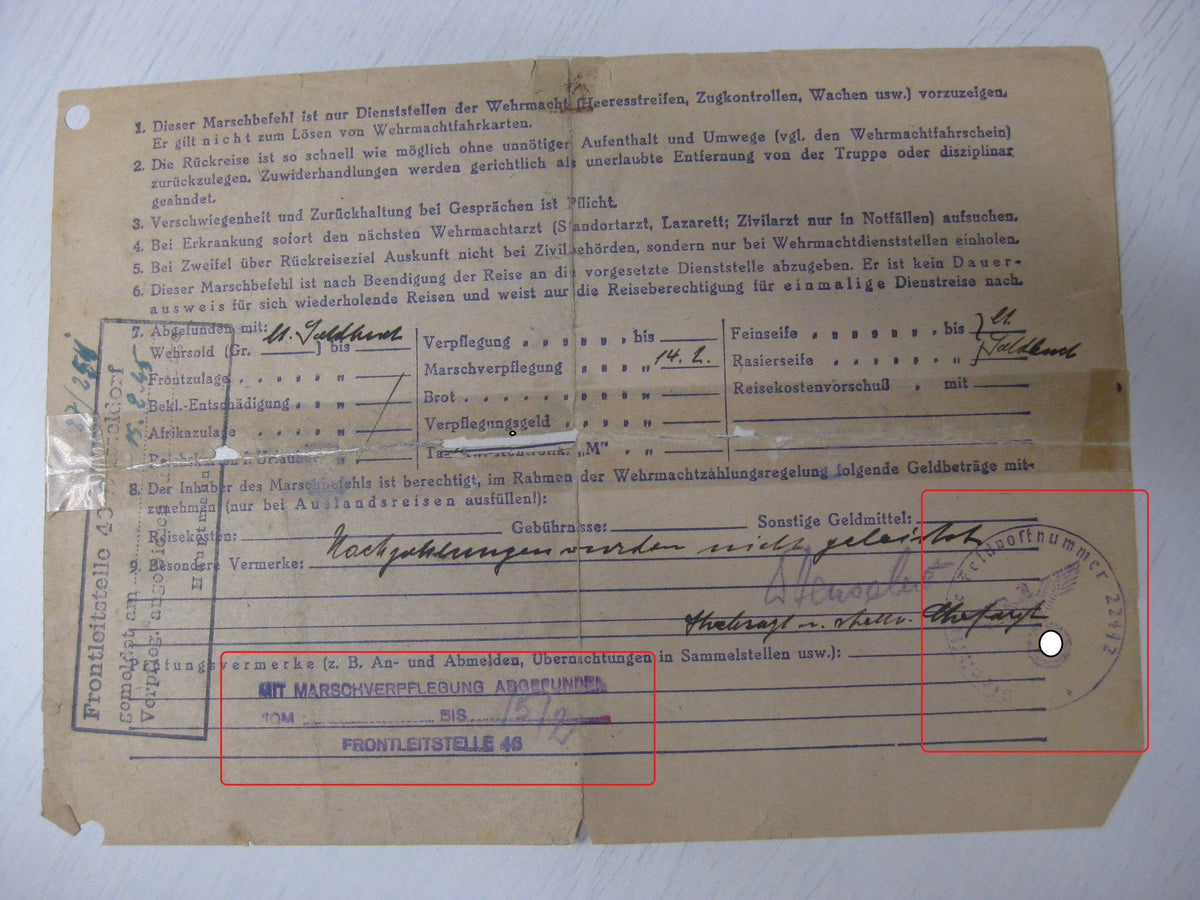 1. Dieser Marschbefehl ist nur Dienststellen der Wehrmacht (Heeresstreifen, Zugkontrollen, Wachen usw.) vorzuzeigen.
Er gilt nicht zum Lösen von Wehrmachtfahrkarten.
2. Die Rückreise ist so schnell wie möglich ohne unnötigen Aufenthalt und Umwege (vgl. den Wehrmachtfahrschein)
zurückzulegen. Zuwiderhandlungen werden gerichtlich als unerlaubte Entfernung von der Truppe oder disziplinar
geahndet.
3. Verschwiegenheit und Zurückhaltung bei Gesprächen ist Pflicht.
4. Bei Erkrankung sofort den nächsten Wehrmachtarzt (Standortarzt, Lazarett; Zivilarzt nur in Notfällen) aufsuchen.
5. Bei Zweifel über Rückreiseziel Auskunft nicht bei Zivilbehörden, sondern nur bei Wehrmachtdienststellen einholen.
6. Dieser Marschbefehl ist nach Beendigung der Reise an die vorgesetzte Dienststelle abzugeben. Er ist kein Dauer-
ausweis für sich wiederholende Reisen und weist nur die Reiseberechtigung für einmalige Dienstreise nach.
7. Abgefunden mit: lt. Soldbuch
Wehrsold (Gr. ) bis
Frontzulage . . . . . „
Bekl.-Entschädigung . . „
Afrikazulage . . . . . „
Verpflegung . . . . . bis
Marschverpflegung . . . „ 14. 2.
Brot . . . . . . . . . „
Verpflegungsgeld . . . . „
„M" . . „
Feinseife . . . . . . . bis } lt.
Rasierseife . . . . . „ } Soldbuch
Reisekostenvorschuß . mit
8. Der Inhaber des Marschbefehls ist berechtigt, im Rahmen der Wehrmachtzahlungsregelung folgende Geldbeträge mit-
zunehmen (nur bei Auslandsreisen ausfüllen!):
Reisekosten: Gebührnisse: Sonstige Geldmittel:
9. Besondere Vermerke: Nachzahlungen wurden nicht geleistet
Chefarzt
Feldpostnummer 22442
(z. B. An- und Abmelden, Übernachtungen in Sammelstellen usw.):
MIT MARSCHVERPFLEGUNG ABGEFUNDEN
VOM BIS 15/2
FRONTLEITSTELLE 46
Frontleitstelle
gemeldet am 15. 2. 45